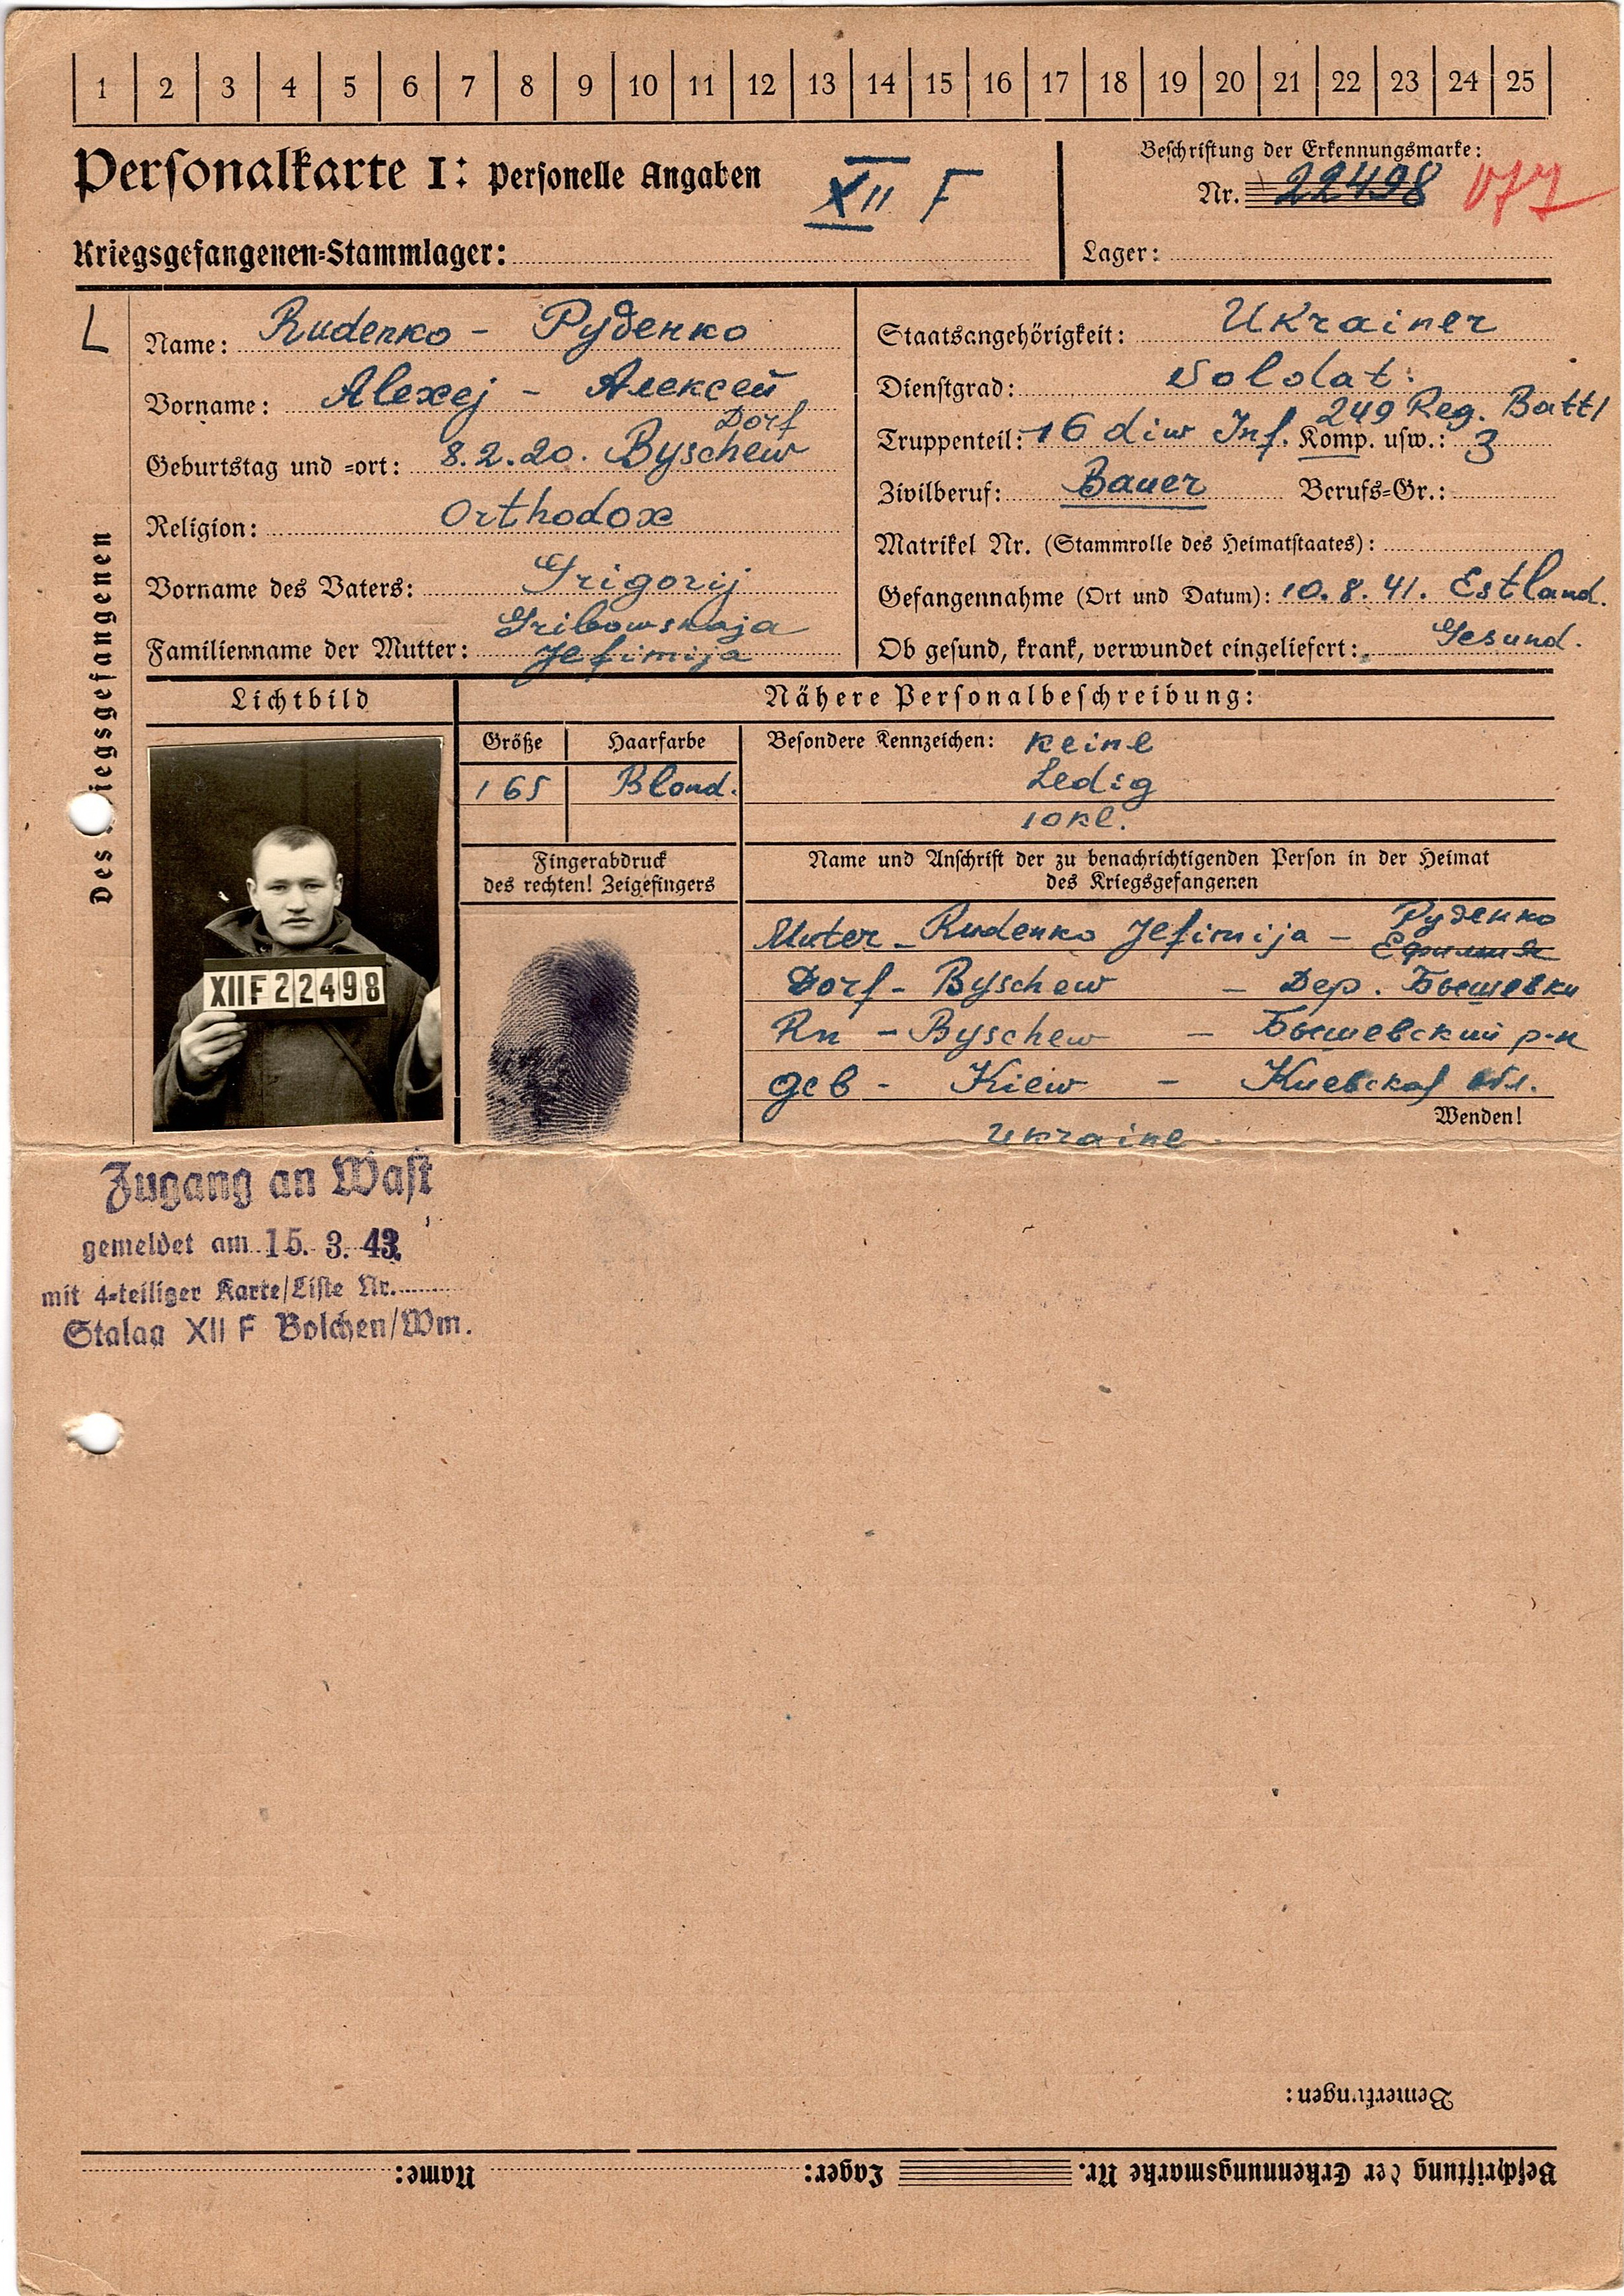 1 2 3 4 5 6 7 8 9 10 11 12 13 14 15 16 17 18 19 20 21 22 23 24 25
Personalkarte I: Personelle Angaben
XII F
Kriegsgefangenen-Stammlager:
Beschriftung der Erkennungsmarke:
Nr. 22498
Lager:
Des Kriegsgefangenen
Name: Rudenko - Руденко
Vorname: Alexej - Алексей
Dorf
Geburtstag und -ort: 8.2.20. Byschew
Religion: Orthodox
Vorname des Vaters: Grigorij
Gribowskaja
Familienname der Mutter: Jefimija
Staatsangehörigkeit: Ukrainer
Dienstgrad: Soldat.
249 Reg. Battl
Truppenteil: 16 diw Inf. Komp. usw.: 3
Zivilberuf: Bauer Berufs-Gr.:
Matrikel Nr. (Stammrolle des Heimatstaates):
Gefangennahme (Ort und Datum): 10.8.41. Estland.
Ob gesund, krank, verwundet eingeliefert: Gesund.
Lichtbild
XIIF22498
Nähere Personalbeschreibung:
Größe Haarfarbe
165 Blond.
Besondere Kennzeichen: Keine
Ledig
10 kl.
Fingerabdruck
des rechten! Zeigefingers
Name und Anschrift der zu benachrichtigenden Person in der Heimat
des Kriegsgefangenen
Руденко
Muter - Rudenko Jefimija - Ефимия
Dorf - Byschew - Дер. Бышевки
Rn - Byschew - Бышевский р-н
Geb - Kiew - Киевская обл.
Wenden!
Ukraine
Zugang an Wast
gemeldet am 15. 3. 43
mit 4-teiliger Karte/Liste Nr.
Stalag XII F Bolchen/Wm.
Bemerkungen:
Beschriftung der Erkennungsmarke Nr. Lager: Name: